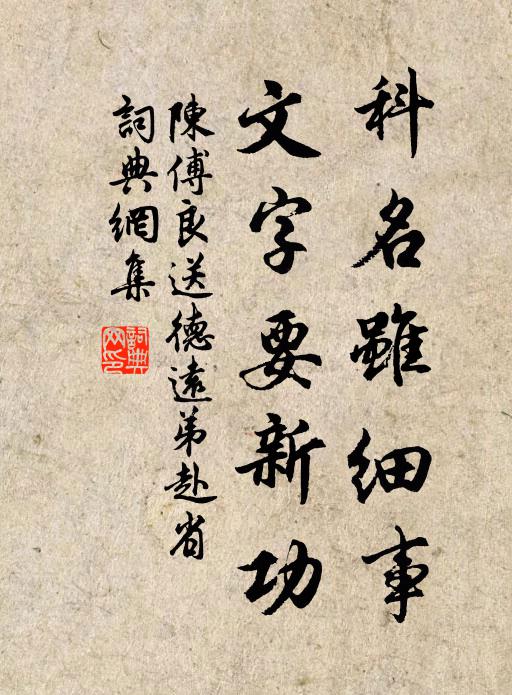 科名雖細事
文字要新功
陳傅良送德遠弟赴省
詞典網集
詞典网印